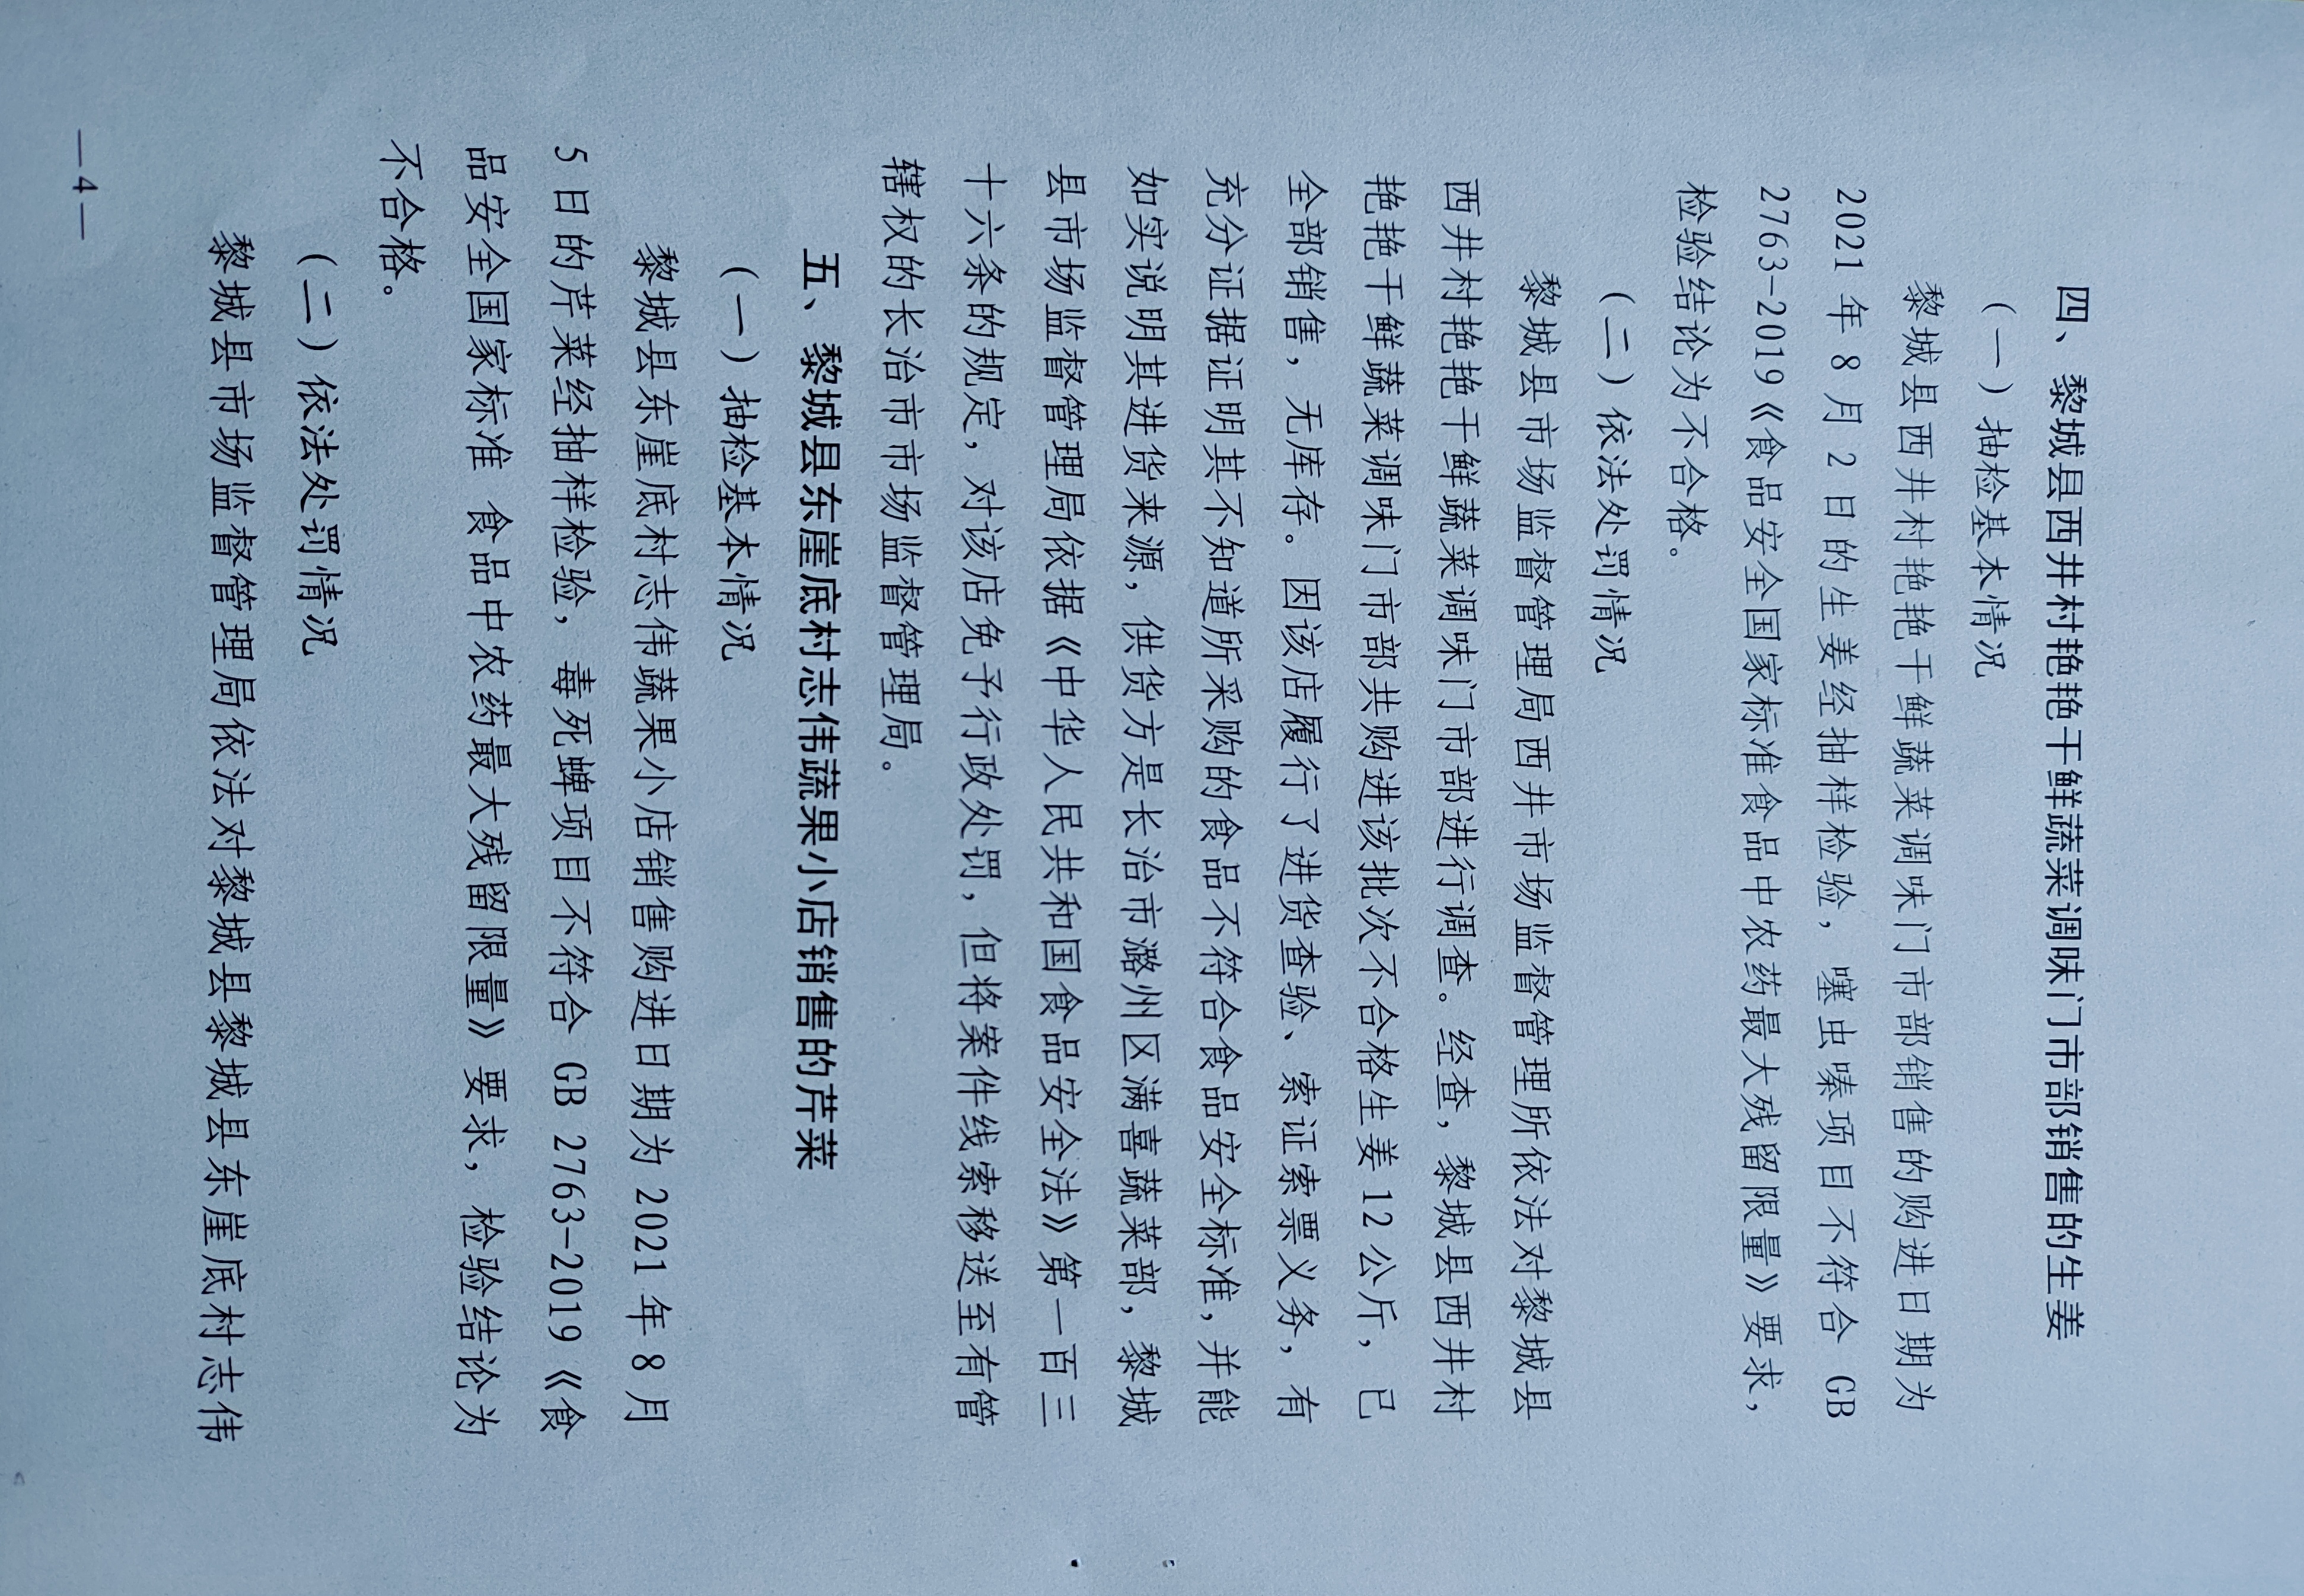 四、黎城县西井村艳艳干鲜蔬菜调味门市部销售的生姜
（一）抽检基本情况
黎城县西井村艳艳干鲜蔬菜调味门市部销售的购进日期为
2021 年 8 月 2 日的生姜经抽样检验，噻虫嗪项目不符合 GB
2763-2019《食品安全国家标准食品中农药最大残留限量》要求，
检验结论为不合格。
（二）依法处罚情况
黎城县市场监督管理局西井市场监督管理所依法对黎城县
西井村艳艳干鲜蔬菜调味门市部进行调查。经查，黎城县西井村
艳艳干鲜蔬菜调味门市部共购进该批次不合格生姜 12 公斤，已
全部销售，无库存。因该店履行了进货查验、索证索票义务，有
充分证据证明其不知道所采购的食品不符合食品安全标准，并能
如实说明其进货来源，供货方是长治市潞州区满喜蔬菜部，黎城
县市场监督管理局依据《中华人民共和国食品安全法》第一百三
十六条的规定，对该店免予行政处罚，但将案件线索移送至有管
辖权的长治市市场监督管理局。
五、黎城县东崖底村志伟蔬果小店销售的芹菜
（一）抽检基本情况
黎城县东崖底村志伟蔬果小店销售购进日期为 2021 年 8 月
5 日的芹菜经抽样检验，毒死蜱项目不符合 GB 2763-2019《食
品安全国家标准 食品中农药最大残留限量》要求，检验结论为
不合格。
（二）依法处罚情况
黎城县市场监督管理局依法对黎城县黎城县东崖底村志伟
—4—